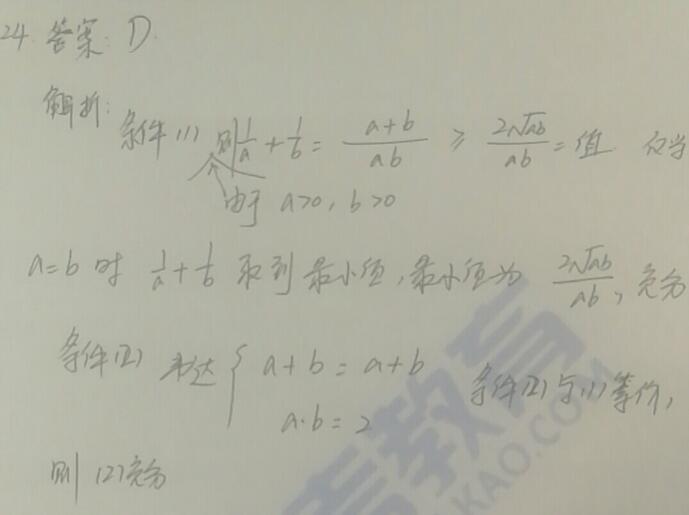 24. 答案: D.
解析:
条件(1) 则 1/a + 1/b = (a+b)/(ab) ≥ 2√ab/(ab) = 值 仅当
由于 a>0, b>0
a=b 时 1/a + 1/b 取到最小值, 最小值为 2√ab/(ab), 充分
条件(2) 韦达 { a+b=a+b
a·b=2
条件(2)与(1)等价,
则 (2)充分
青教育
KAO.COM